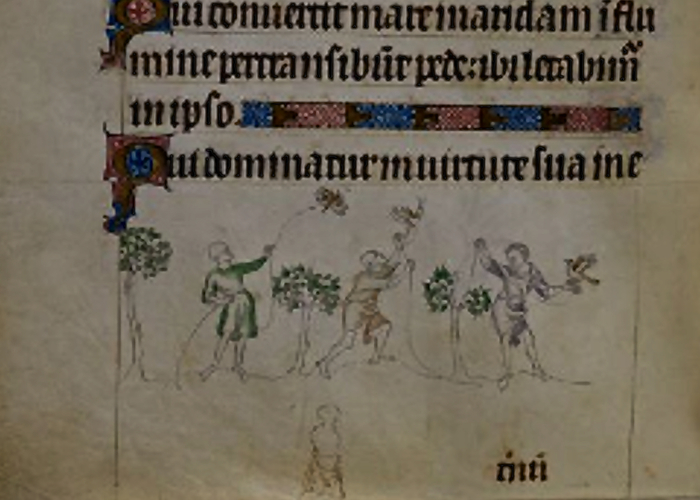 Qui conuertit mare in aridam ī flu
mine pertransibūt pede: ibi letabim̃
in ipso.
Qui dominatur in uirtute sua in e